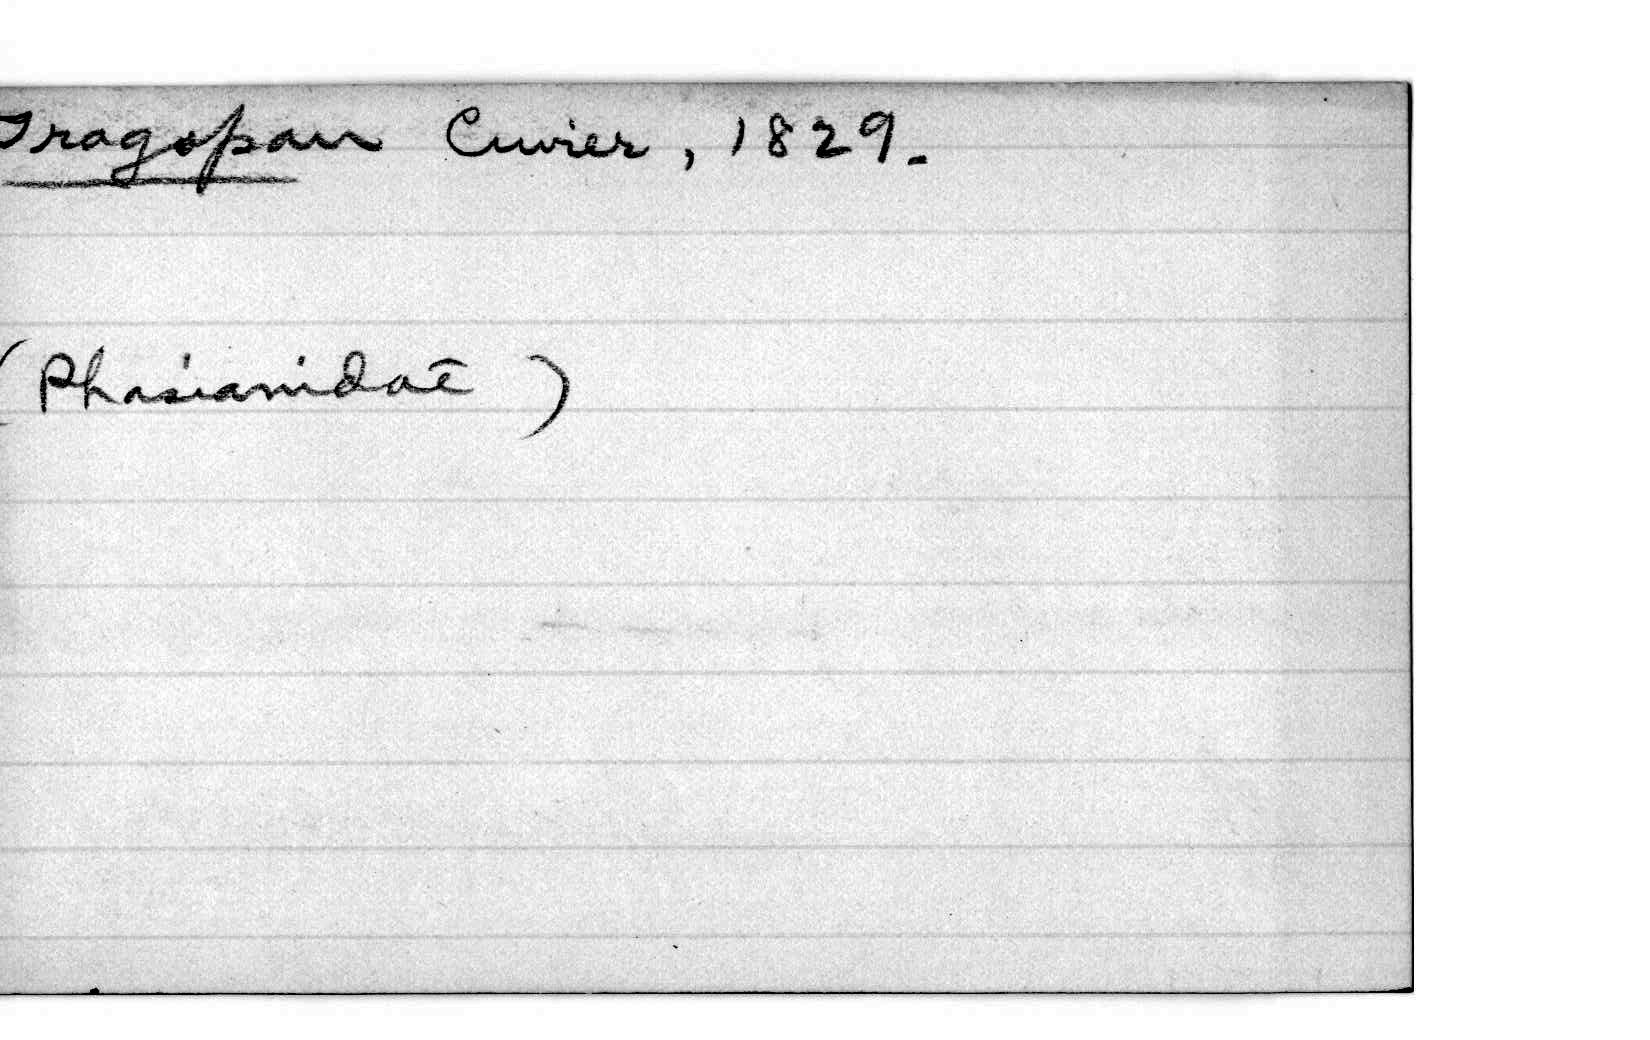 Tragopan Cuvier, 1829.
(Phasianidae)